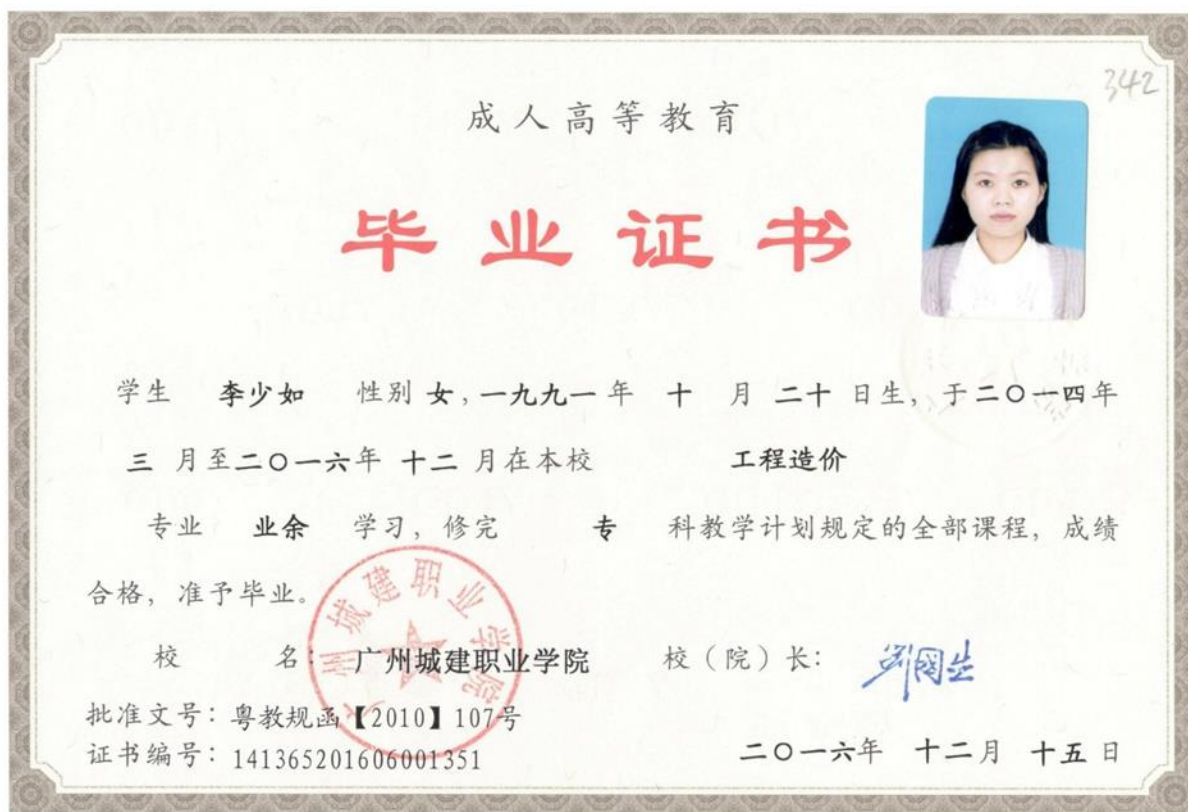 342
成人高等教育
毕业证书
学生 李少如 性别 女，一九九一 年 十 月 二十 日生，于 二〇一四 年
三 月至 二〇一六 年 十二 月在本校 工程造价
专业 业余 学习，修完 专 科教学计划规定的全部课程，成绩
合格，准予毕业。
广州城建职业学院
校 名：广州城建职业学院 校（院）长：刘国生
批准文号：粤教规函【2010】107号
证书编号：141365201606001351
二〇一六年 十二月 十五日